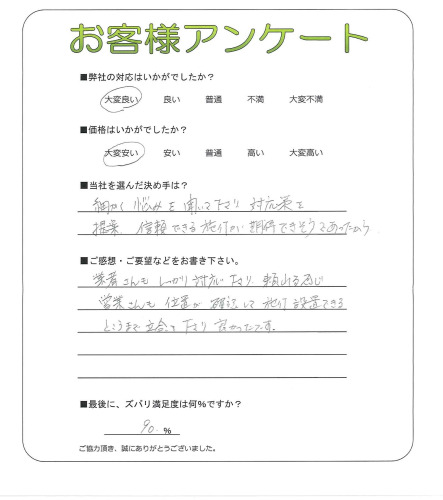 お客様アンケート
■弊社の対応はいかがでしたか?
大変良い 良い 普通 不満 大変不満
■価格はいかがでしたか?
大変安い 安い 普通 高い 大変高い
■当社を選んだ決め手は?
細かく悩みを聞いて下さり 対応策を
提案 信頼できる施行が期待できそうであったから
■ご感想・ご要望などをお書き下さい。
業者さんもしっかり対応下さり 頼れる感じ
営業さんも位置が確認して施行設置できる
ところまで立合って下さり 良かったです。
■最後に、ズバリ満足度は何%ですか?
90. %
ご協力頂き、誠にありがとうございました。